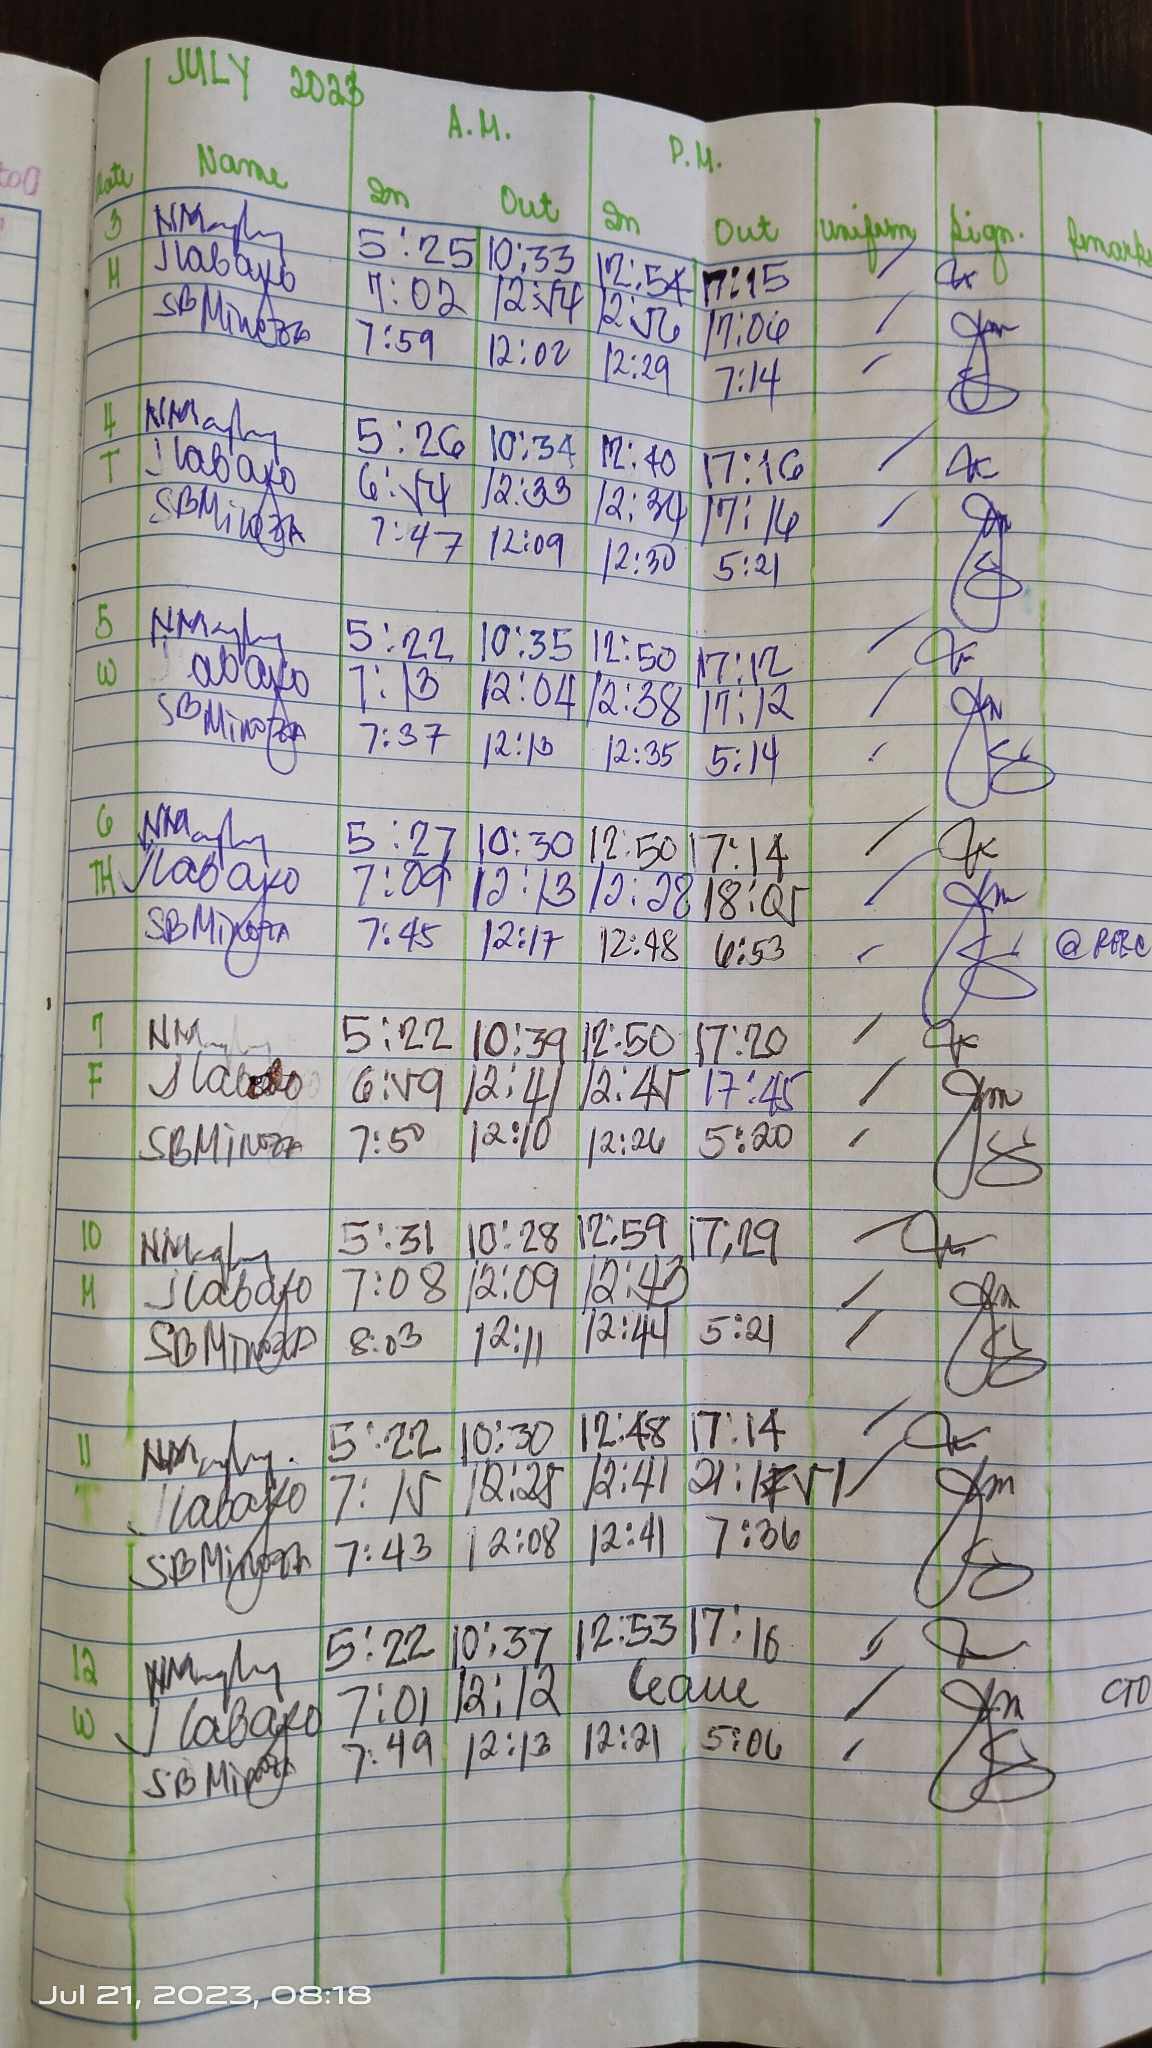 JULY 2023
A.M. P.M.
Date Name In Out In Out Uniform Sign. Remarks
3 5:25 10:33 12:54 17:15
M Jlabayo 7:02 12:54 12:56 17:06
SBMinoza 7:59 12:02 12:29 7:14
4 5:26 10:34 12:40 17:16
T Jlabayo 6:54 12:33 12:34 17:16
SBMinoza 7:47 12:09 12:30 5:21
5 5:22 10:35 12:50 17:12
W labayo 7:13 12:04 12:38 17:12
SBMinoza 7:37 12:13 12:35 5:14
6 5:27 10:30 12:50 17:14
TH Jlabayo 7:09 12:13 12:28 18:05
SBMinoza 7:45 12:17 12:48 6:53
7 5:22 10:39 12:50 17:20
F 6:59 12:41 12:45 17:45
SBMinoza 7:50 12:10 12:26 5:20
10 5:31 10:28 12:59 17:29
M Jlabayo 7:08 12:09 12:43
SBMinoza 8:03 12:11 12:44 5:21
11 5:22 10:30 12:48 17:14
T Jlabayo 7:15 12:25 12:41
SBMinoza 7:43 12:08 12:41 7:36
12 5:22 10:37 12:53 17:16
W Jlabayo 7:01 12:12 leave CTO
SBMinoza 7:49 12:13 12:21 5:06
Jul 21, 2023, 08:18